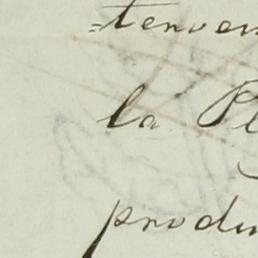 =tenvon
la Pl
produ